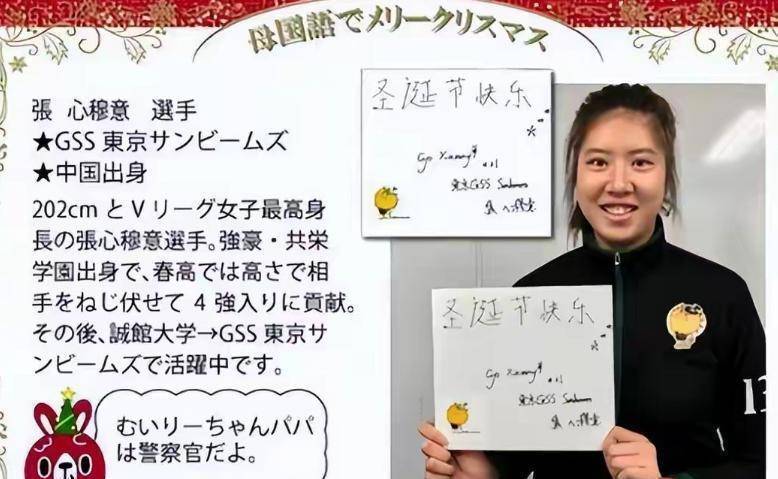 母国語でメリークリスマス
張 心穆意 選手
★GSS東京サンビームズ
★中国出身
202cmとVリーグ女子最高身
長の張心穆意選手。強豪・共栄
学園出身で、春高では高さで相
手をねじ伏せて4強入りに貢献。
その後、誠館大学→GSS東京サ
ンビームズで活躍中です。
むいりーちゃんパパ
は警察官だよ。
圣诞节快乐
東京GSS
圣诞节快乐
東京GSS
13